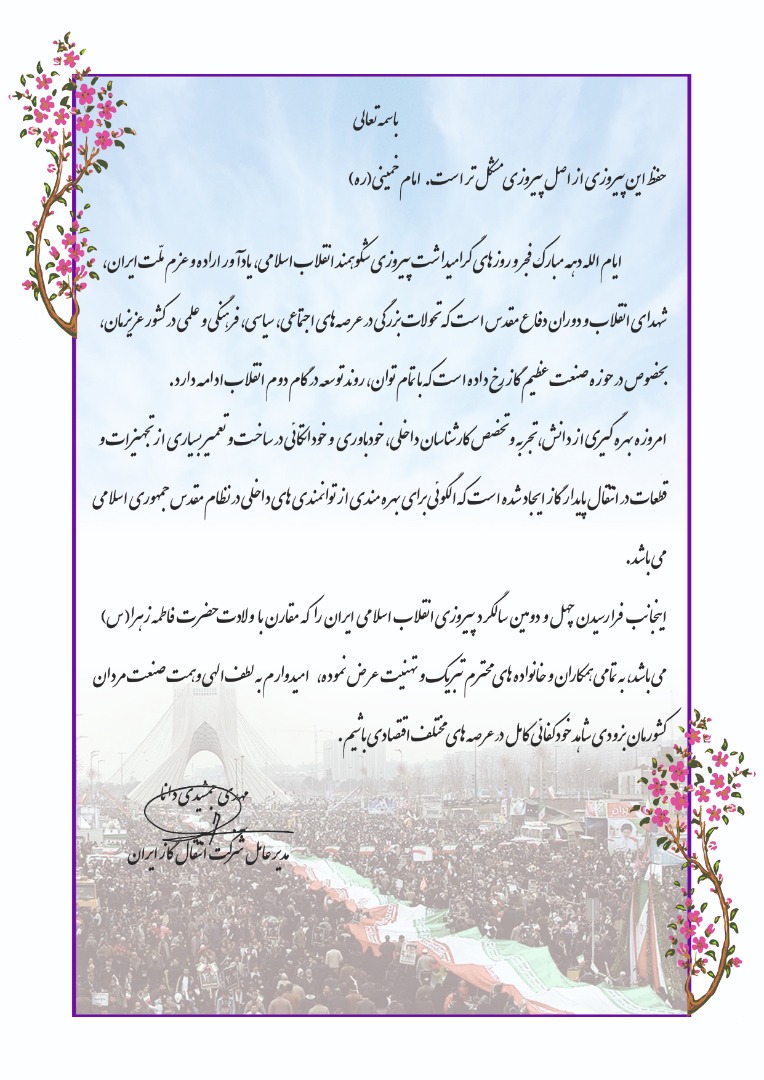 باسمه تعالی
حفظ این پیروزی از اصل پیروزی مشکل تر است. امام خمینی(ره)
ایام الله دهه مبارک فجر و روز های گرامیداشت پیروزی شکوهمند انقلاب اسلامی، یادآور اراده و عزم ملّت ایران،
شهدای انقلاب و دوران دفاع مقدس است که تحولات بزرگی در عرصه های اجتماعی، سیاسی، فرهنگی و علمی در کشور عزیزمان،
بخصوص در حوزه صنعت عظیم گاز رخ داده است که با تمام توان، روند توسعه در گام دوم انقلاب ادامه دارد.
امروزه بهره گیری از دانش، تجربه و تخصص کارشناسان داخلی، خودباوری و خوداتکائی در ساخت و تعمیر بسیاری از تجهیزات و
قطعات در انتقال پایدار گاز ایجاد شده است که الگوئی برای بهره مندی از توانمندی های داخلی در نظام مقدس جمهوری اسلامی
می باشد.
اینجانب فرارسیدن چهل و دومین سالگرد پیروزی انقلاب اسلامی ایران را که مقارن با ولادت حضرت فاطمه زهرا(س)
می باشد، به تمامی همکاران و خانواده های محترم تبریک و تهنیت عرض نموده، امیدوارم به لطف الهی و همت صنعت مردان
کشورمان بزودی شاهد خودکفائی کامل در عرصه های مختلف اقتصادی باشیم.
مهدی جمشیدی دانا
مدیرعامل شرکت انتقال گاز ایران